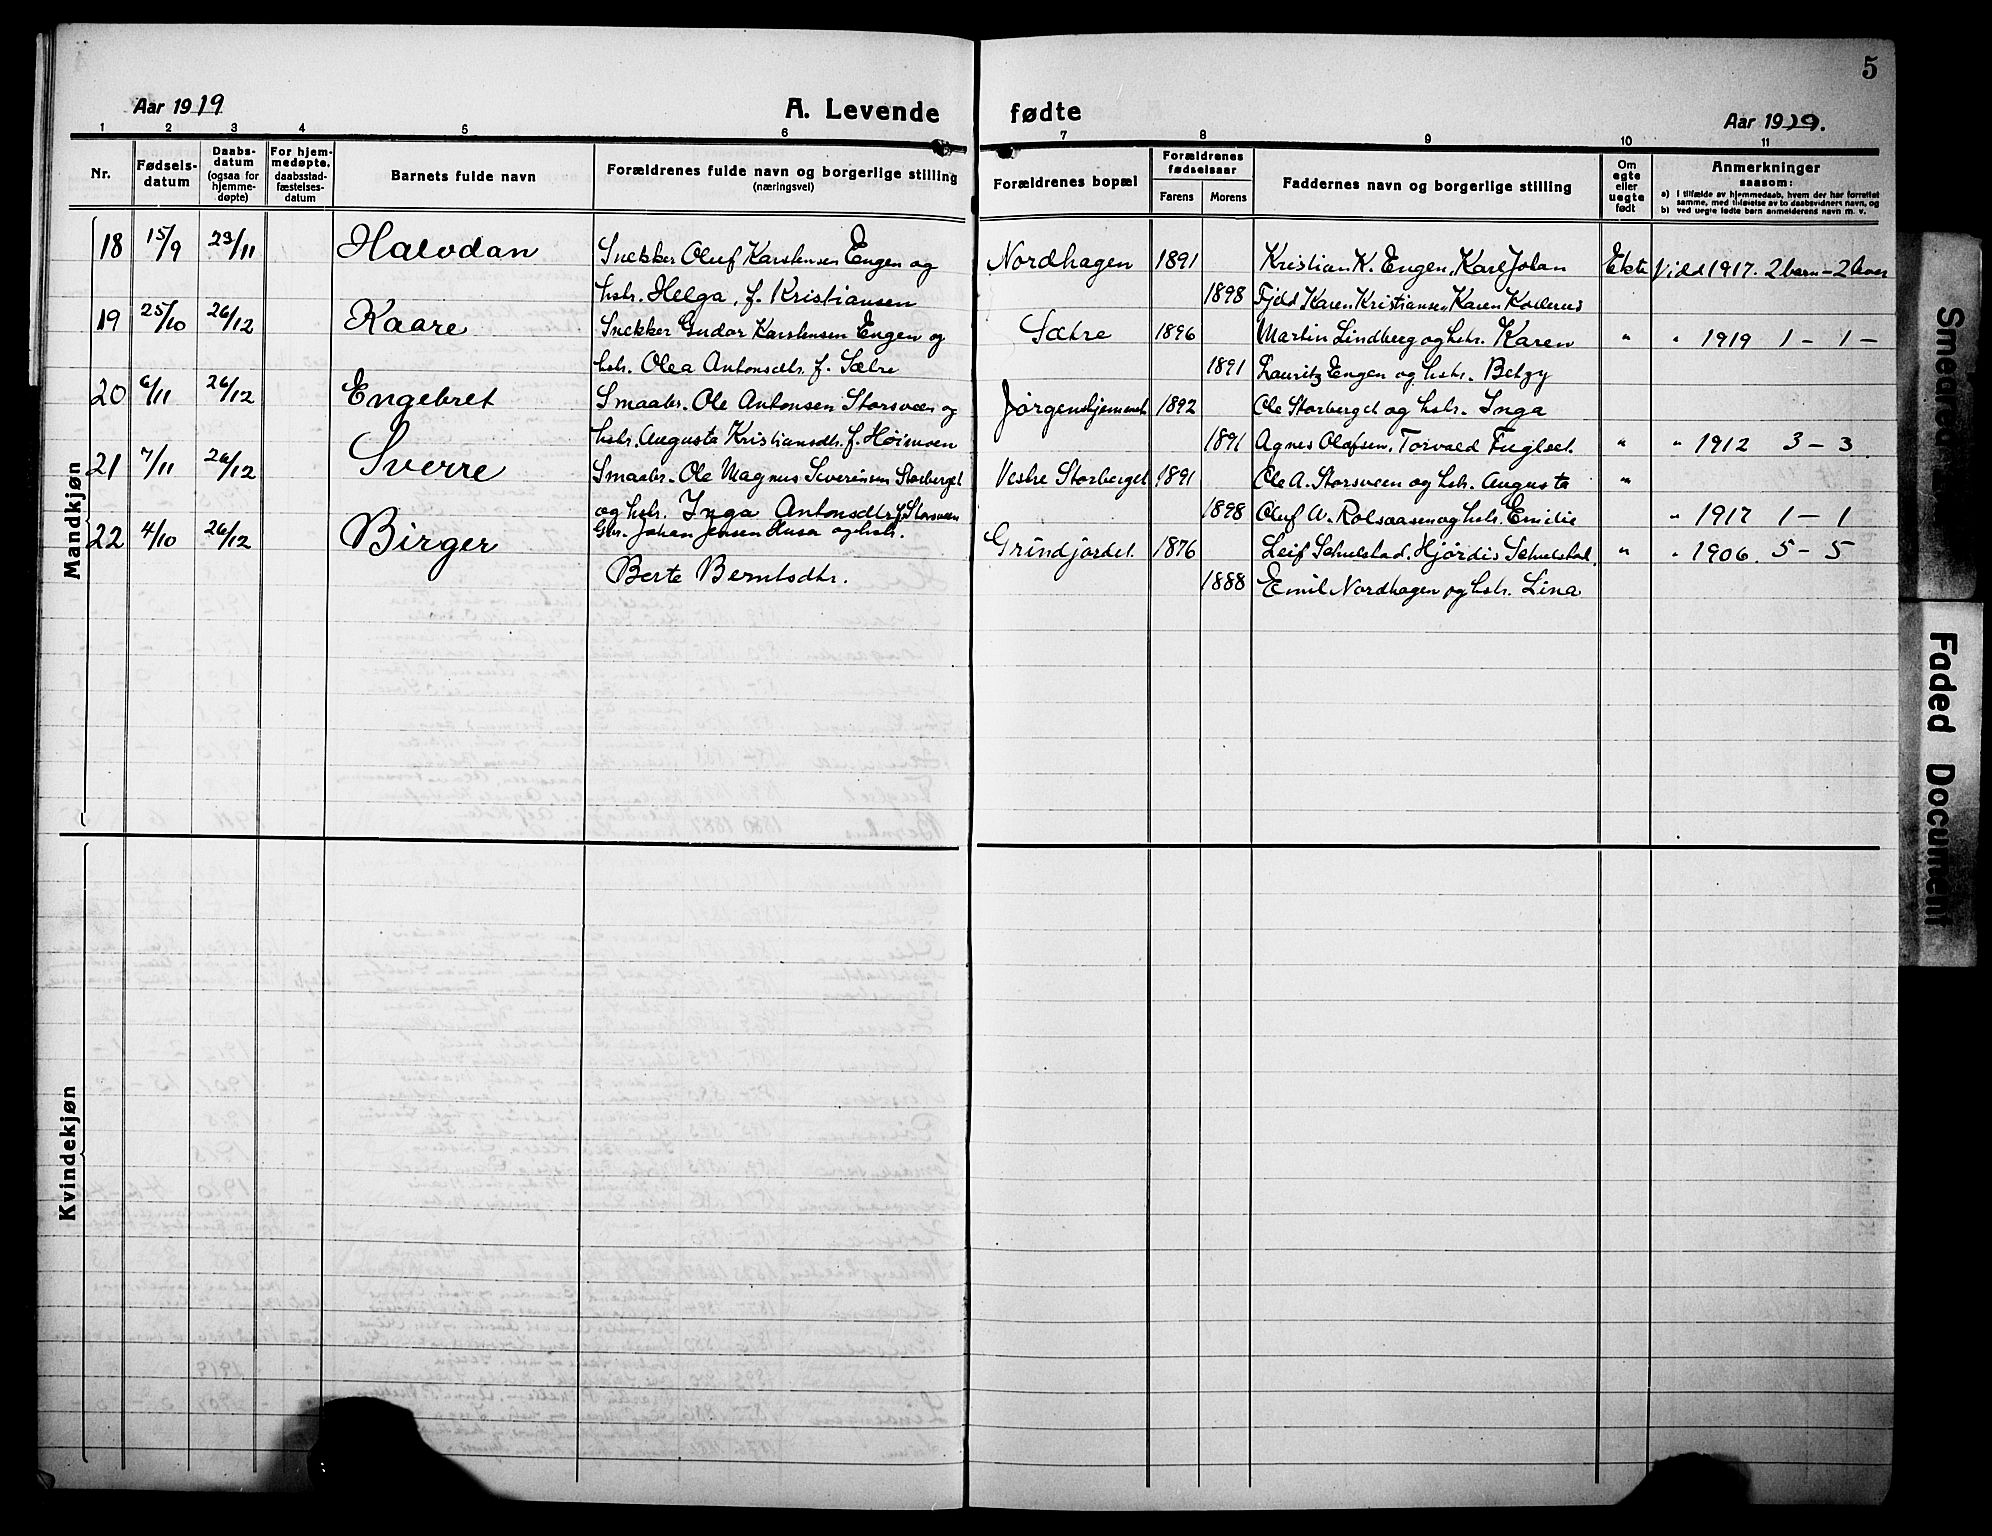 5
Aar 1919 A. Levende fødte Aar 1919.
1 2 3 4 5 6 7 8 9 10 11
Nr. Fødselsdatum Daabsdatum (ogsaa for hjemmedøpte) For hjemmedøpte. daabsstadfæstelsesdatum Barnets fulde navn Forældrenes fulde navn og borgerlige stilling (næringsvei) Forældrenes bopæl Forældrenes fødselsaar Farens Morens Faddernes navn og borgerlige stilling Om egte eller uegte født Anmerkninger saasom:
a) I tilfælde av hjemmedaab, hvem der har forrettet samme, med tilføielse av to daabsvidners navn, og
b) ved uegte fødte barn anmelderens navn m. v.
Mandkjøn
18 15/9 23/11 Halvdan Snekker Oluf Karstensen Engen og Nordhagen 1891 Kristian K. Engen, Karl Johan Ekte Vidd 1917. 2 barn – 2 lever
hstr. Helga, f. Kristiansen 1898 Fjeld Karen Kristiansen, Karen
19 25/10 26/12 Kaare Snekker Gudor Karstensen Engen og Sætre 1896 Martin Lindberg og hstr. Karen " " 1919 1 – 1 –
hstr. Olea Antonsdtr. f. Sætre 1891 Lauritz Engen og hstr. Betzy
20 6/11 26/12 Engebret Smaabr. Ole Antonsen Storsveen og 1892 Ole Storberget og hstr. Inga
hstr. Augusta Kristiansdtr. f. Høimoen 1891 Agnes Olafsen, Torvald Fuglset. " " 1912 3 – 3
21 7/11 26/12 Sverre Smaabr. Ole Magnus Severinsen Storberget Vestre Storberget 1891 Ole A. Storsveen og hstr. Augusta "
og hstr. Inga Antonsdtr. f. Storsveen 1898 Oluf A. Rolsaasen og hstr. Emilie " 1917 1 – 1
22 4/10 26/12 Birger Gbr. Johan Jensen Husa og hstr. Grindjordet 1876 Leif Schulstad, Hjørdis Schulstad. " " 1906. 5 – 5
Berte Berntsdtr. 1888 Emil Nordhagen og hstr. Lina
Kvindekjøn
Smearced
Faded Document